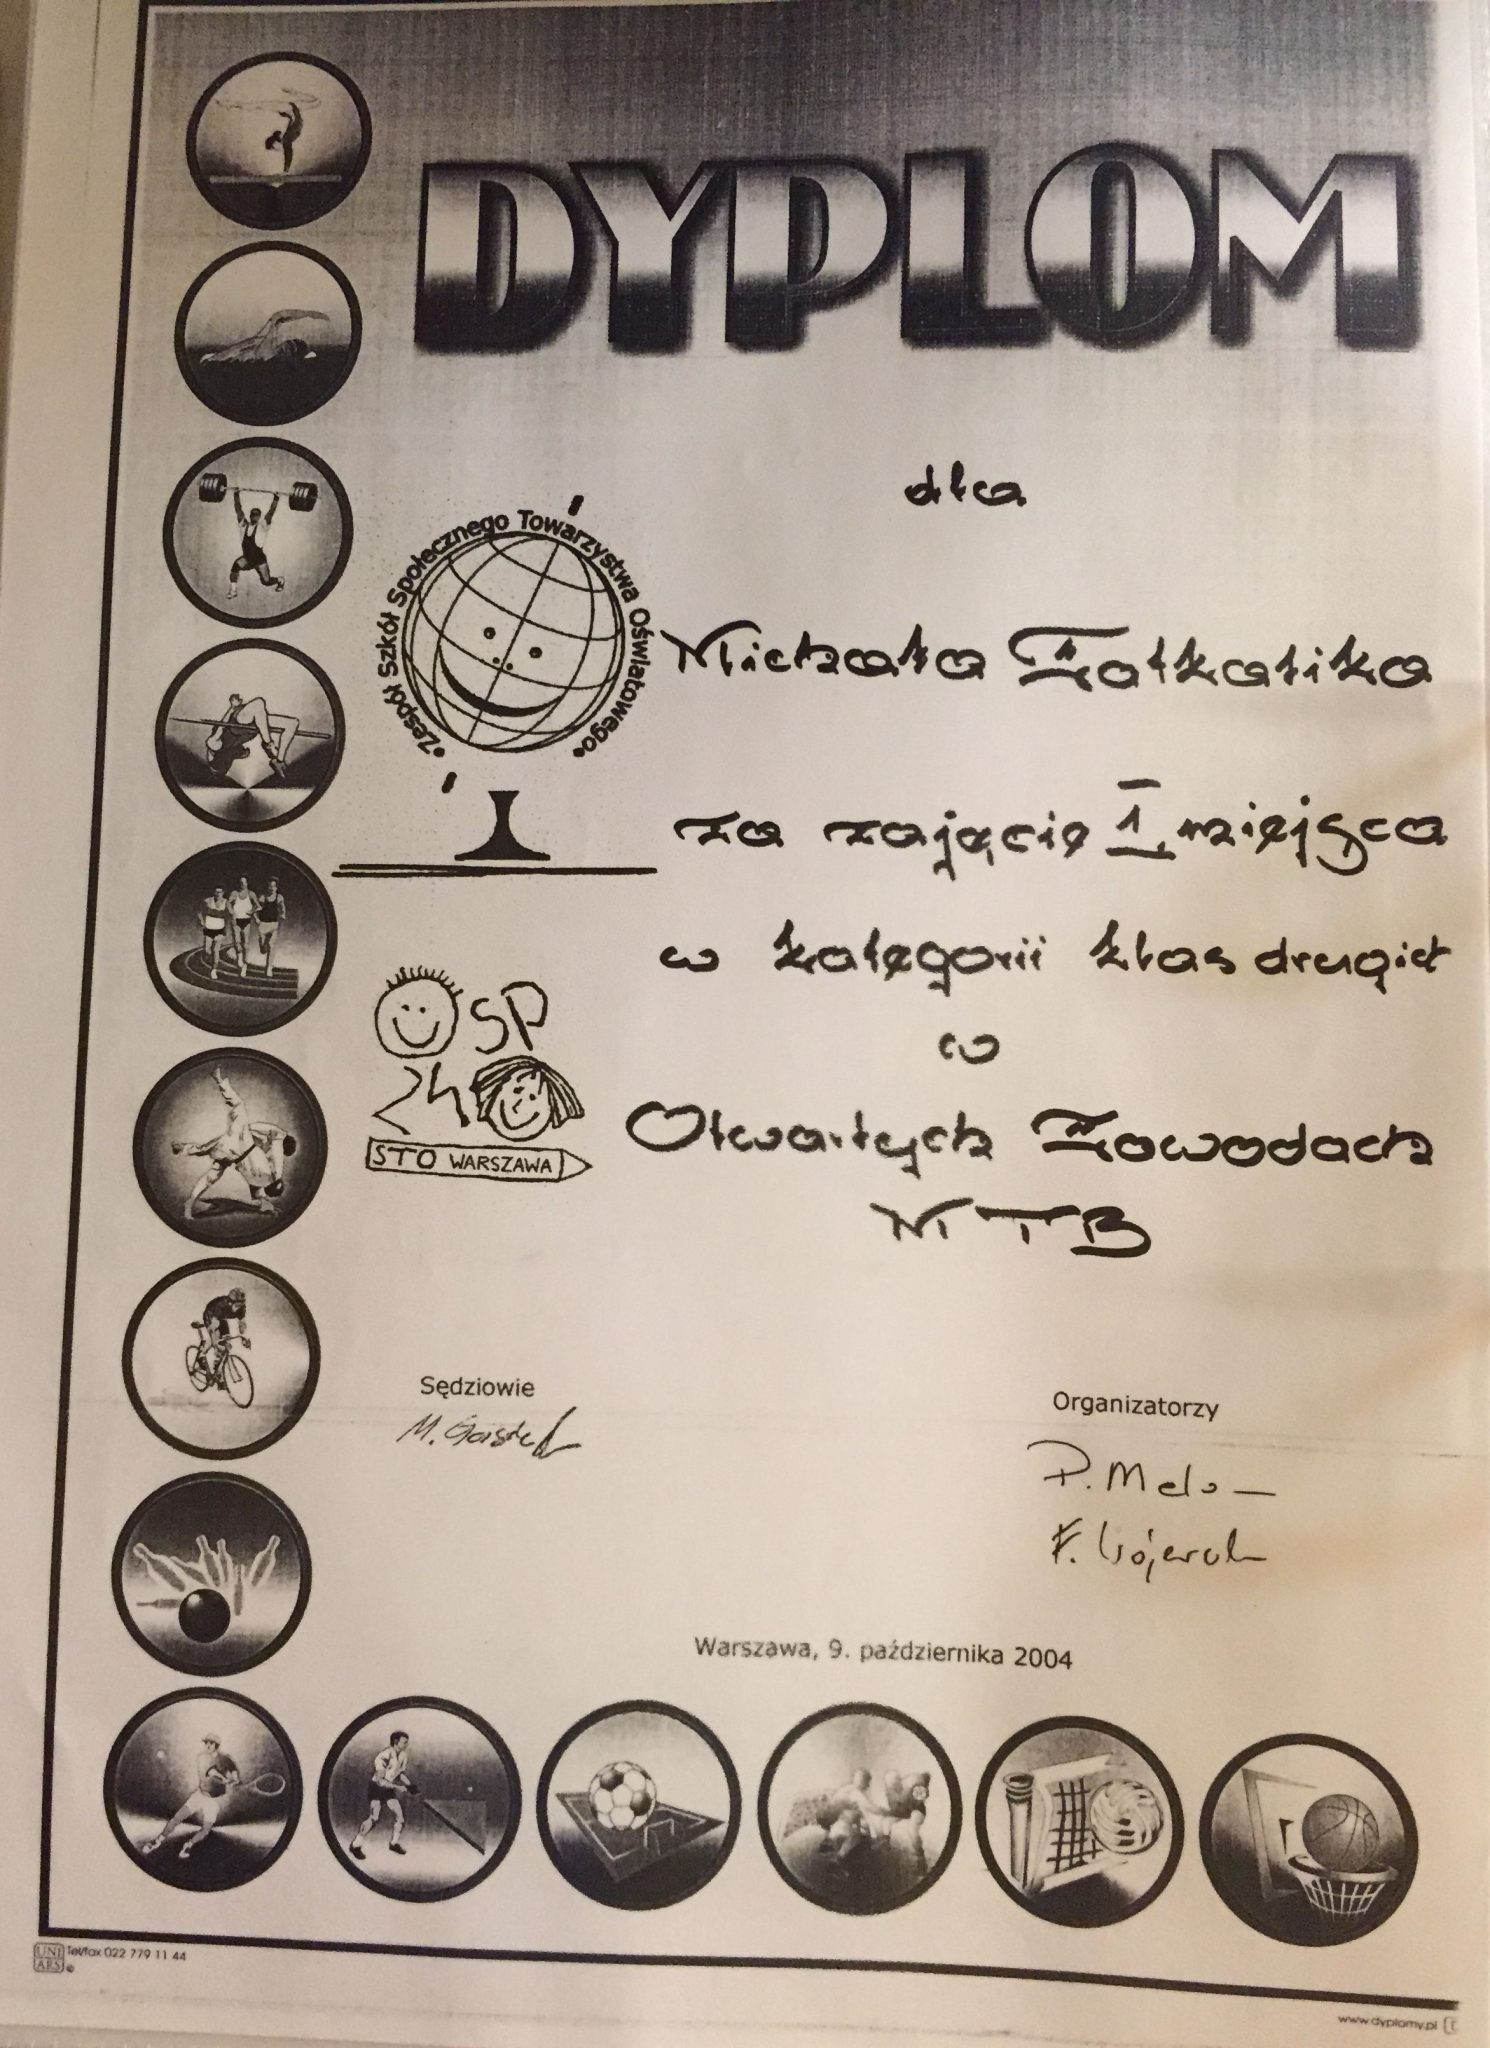 DYPLOM
dla
•Zespół Szkół Społecznego Towarzystwa Oświatowego•
Michała
za zajęcie I miejsca
w kategorii klas drugich
w
Otwartych Zawodach
MTB
SP
24
STO WARSZAWA
Sędziowie
M.
Organizatorzy
P.
F.
Warszawa, 9. października 2004
UNI
ARS
Tel/fax 022 779 11 44
www.dyplomy.pl